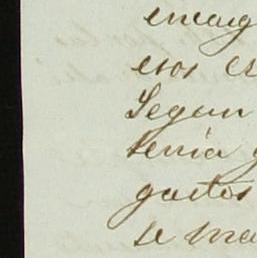 encarg
esos es
Segun
tenia q
gastos
se ma